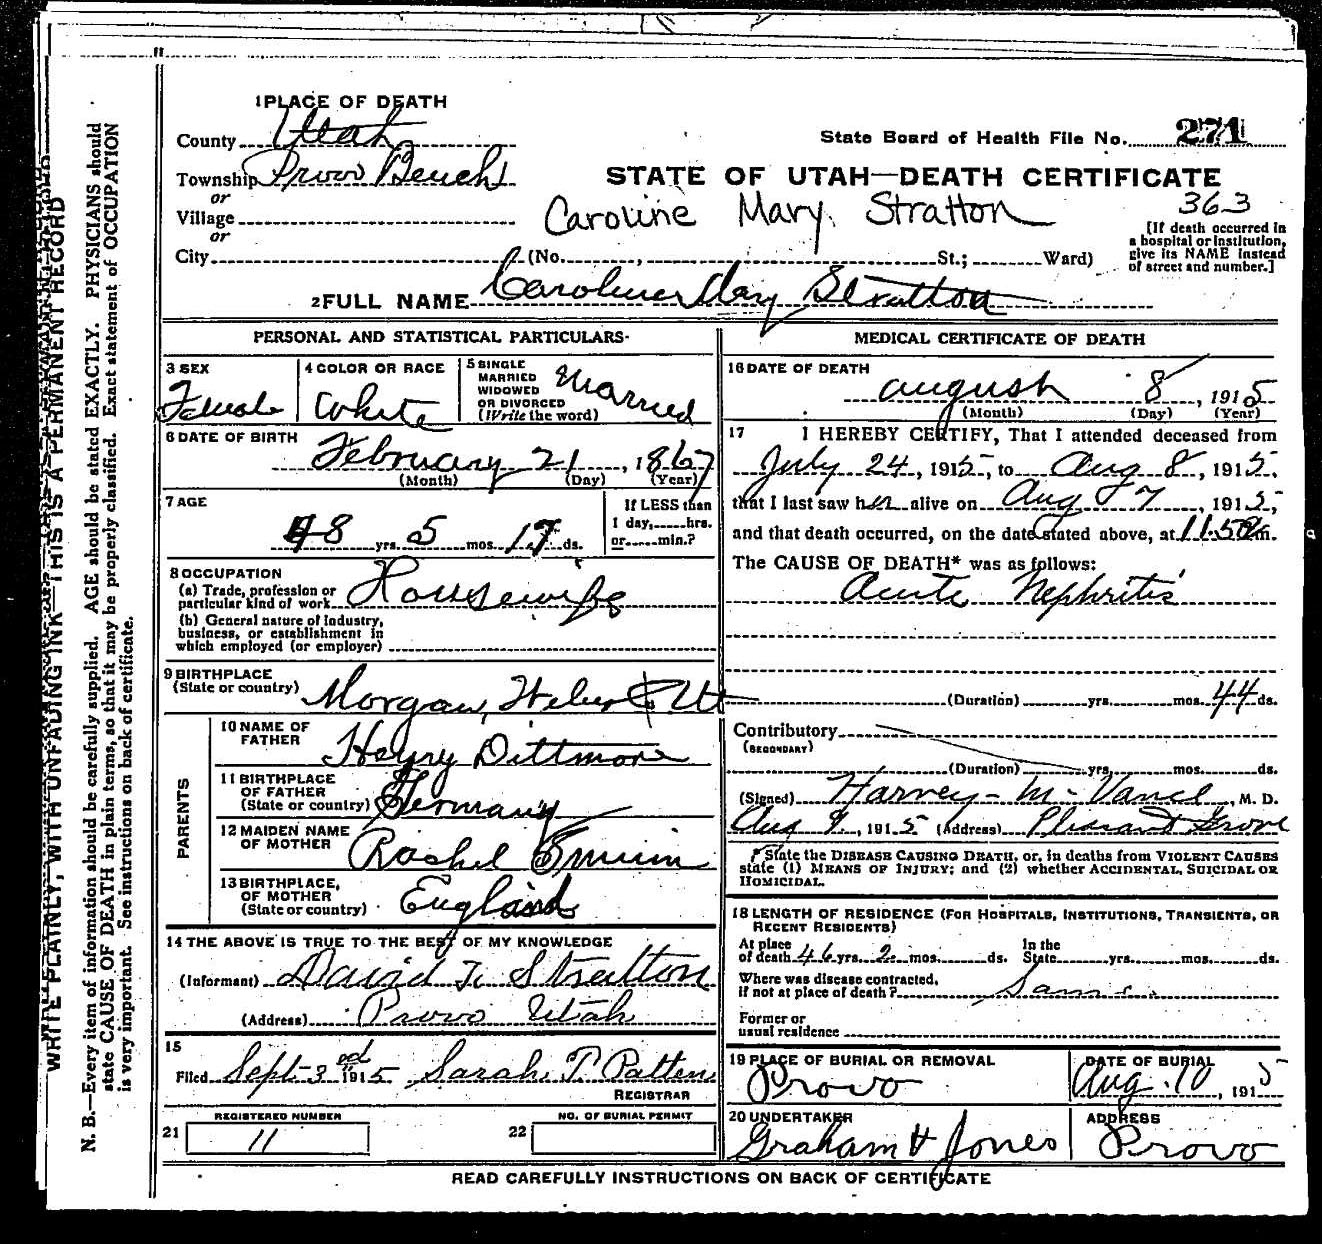 1 PLACE OF DEATH
County Utah
State Board of Health File No. 271
Township Provo Bench
STATE OF UTAH—DEATH CERTIFICATE
or
Village
Caroline Mary Stratton
363
or
City (No. , St.; Ward)
[If death occurred in a hospital or institution, give its NAME instead of street and number.]
2 FULL NAME Caroline May Stratton
PERSONAL AND STATISTICAL PARTICULARS
3 SEX
Female
4 COLOR OR RACE
White
5 SINGLE
MARRIED
WIDOWED
OR DIVORCED
(Write the word)
Married
6 DATE OF BIRTH
February 21, 1867
(Month) (Day) (Year)
7 AGE
48 yrs. 5 mos. 17 ds.
If LESS than
1 day, hrs.
or min.?
8 OCCUPATION
(a) Trade, profession or
particular kind of work Housewife
(b) General nature of industry,
business, or establishment in
which employed (or employer)
9 BIRTHPLACE
(State or country) Morgan, Ut
PARENTS
10 NAME OF
FATHER Henry Dittmore
11 BIRTHPLACE
OF FATHER
(State or country) Germany
12 MAIDEN NAME
OF MOTHER Rachel
13 BIRTHPLACE,
OF MOTHER
(State or country) England
14 THE ABOVE IS TRUE TO THE BEST OF MY KNOWLEDGE
(Informant) David T. Stratton
(Address) Provo Utah
15
Filed Sept 3rd 1915 Sarah T. Patten
REGISTRAR
REGISTERED NUMBER
21 11
NO. OF BURIAL PERMIT
22
MEDICAL CERTIFICATE OF DEATH
16 DATE OF DEATH
August 8, 1915
(Month) (Day) (Year)
17 I HEREBY CERTIFY, That I attended deceased from
July 24, 1915, to Aug 8, 1915,
that I last saw her alive on Aug 7, 1915,
and that death occurred, on the date stated above, at m.
The CAUSE OF DEATH* was as follows:
Acute Nephritis
(Duration) yrs. mos. 44 ds.
Contributory
(SECONDARY)
(Duration) yrs. mos. ds.
(Signed) Harvey M. Vance, M. D.
Aug 9, 1915 (Address) Pleasant Grove
*State the DISEASE CAUSING DEATH, or, in deaths from VIOLENT CAUSES
state (1) MEANS OF INJURY; and (2) whether ACCIDENTAL, SUICIDAL OR
HOMICIDAL.
18 LENGTH OF RESIDENCE (FOR HOSPITALS, INSTITUTIONS, TRANSIENTS, OR
RECENT RESIDENTS)
At place
of death 46 yrs. 2 mos. ds.
In the
State yrs. mos. ds.
Where was disease contracted,
if not at place of death? Same
Former or
usual residence
19 PLACE OF BURIAL OR REMOVAL
Provo
DATE OF BURIAL
Aug. 10, 1915
20 UNDERTAKER
Graham & Jones
ADDRESS
Provo
READ CAREFULLY INSTRUCTIONS ON BACK OF CERTIFICATE
WRITE PLAINLY, WITH UNFADING INK—THIS IS A PERMANENT RECORD
N. B.—Every item of information should be carefully supplied. AGE should be stated EXACTLY. PHYSICIANS should
state CAUSE OF DEATH in plain terms, so that it may be properly classified. Exact statement of OCCUPATION
is very important. See instructions on back of certificate.